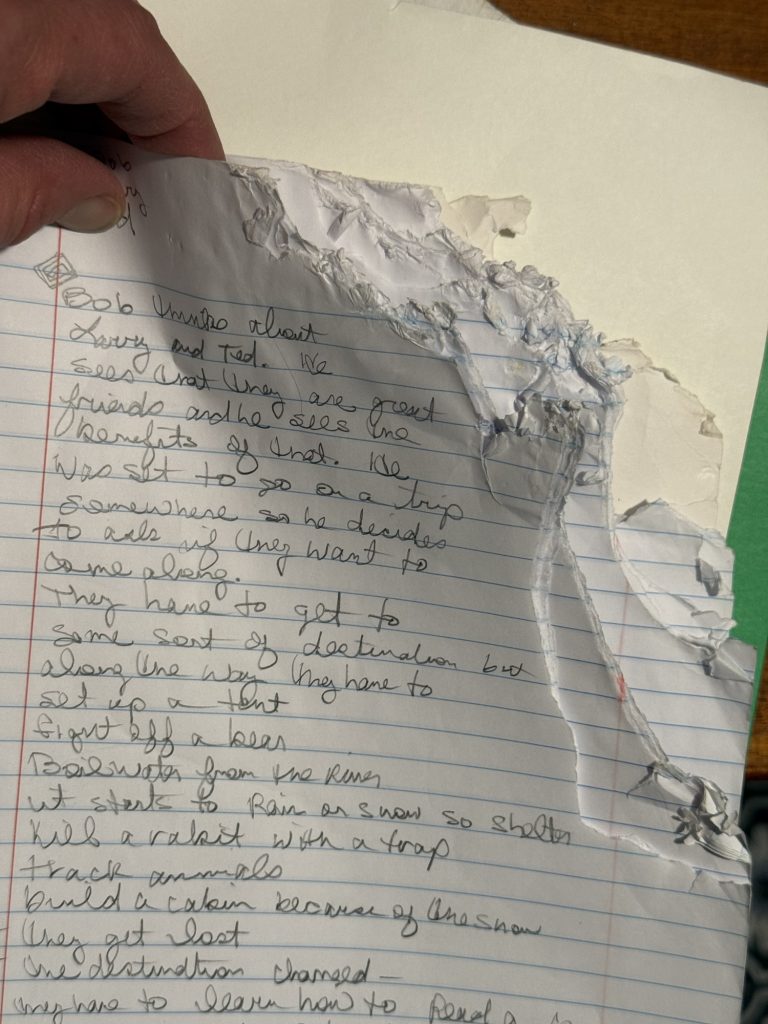 Bob thinks about
Larry and Ted. He
sees that they are great
friends and he sees the
benefits of that. He
was set to go on a trip
somewhere so he decides
to ask if they want to
come along.
They have to get to
some sort of destination but
along the way they have to
set up a tent
fight off a bear
Boil water from the River
it starts to Rain or snow so shelter
kill a rabit with a trap
track animals
build a cabin because of the snow
they get lost
the destination changed -
they have to learn how to Read a